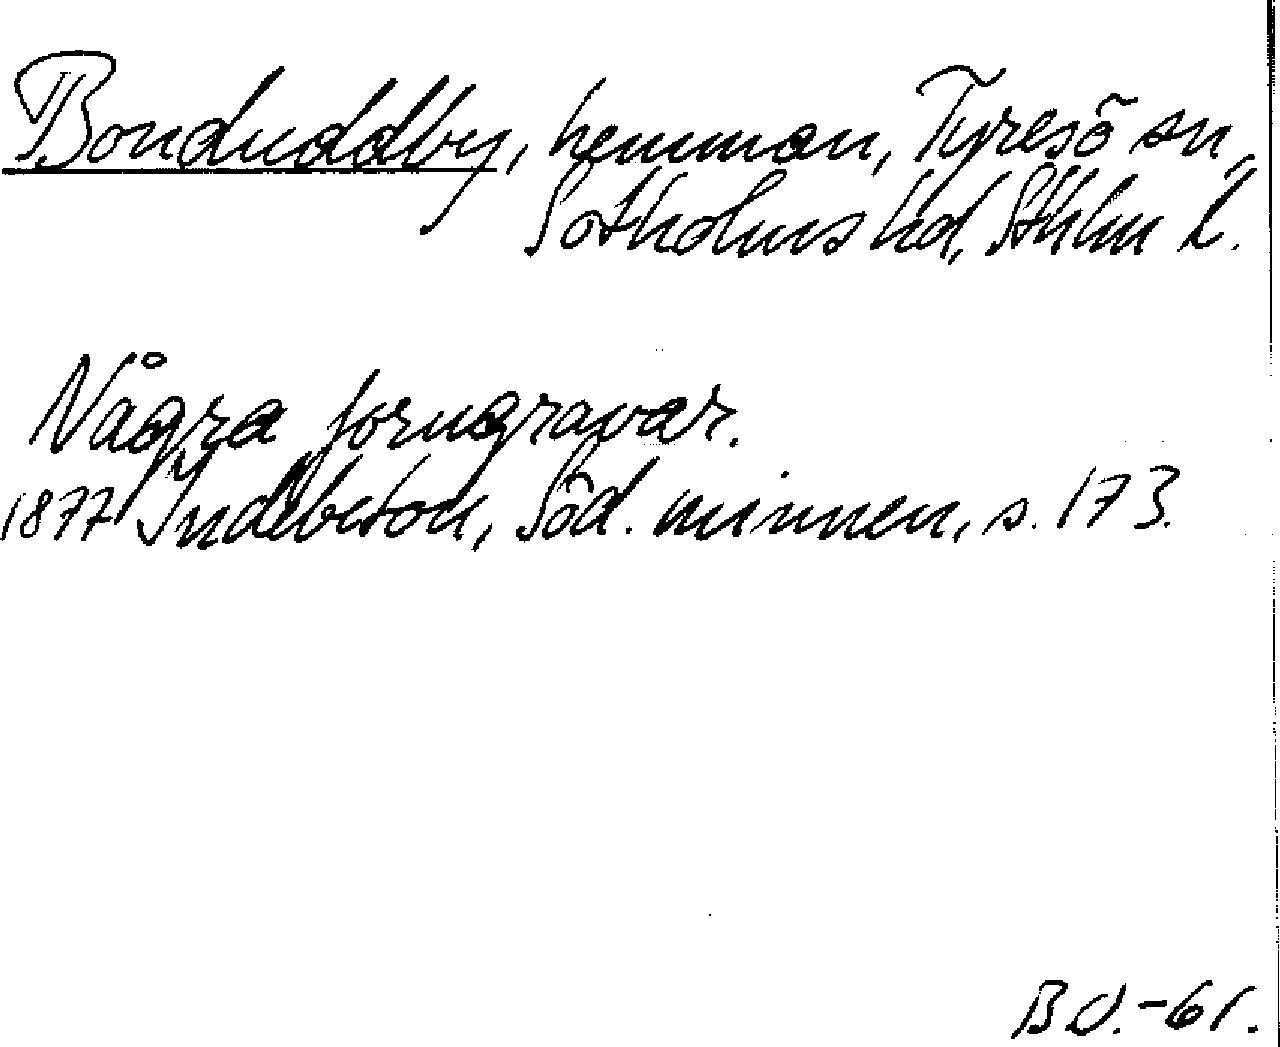 Bonduddby, hemman, Tyresö sn,
Sotholms hd, Sthlm l.
Några forngravar.
1877 Indebetou, Söd. minnen, s. 173.
B d. -61.